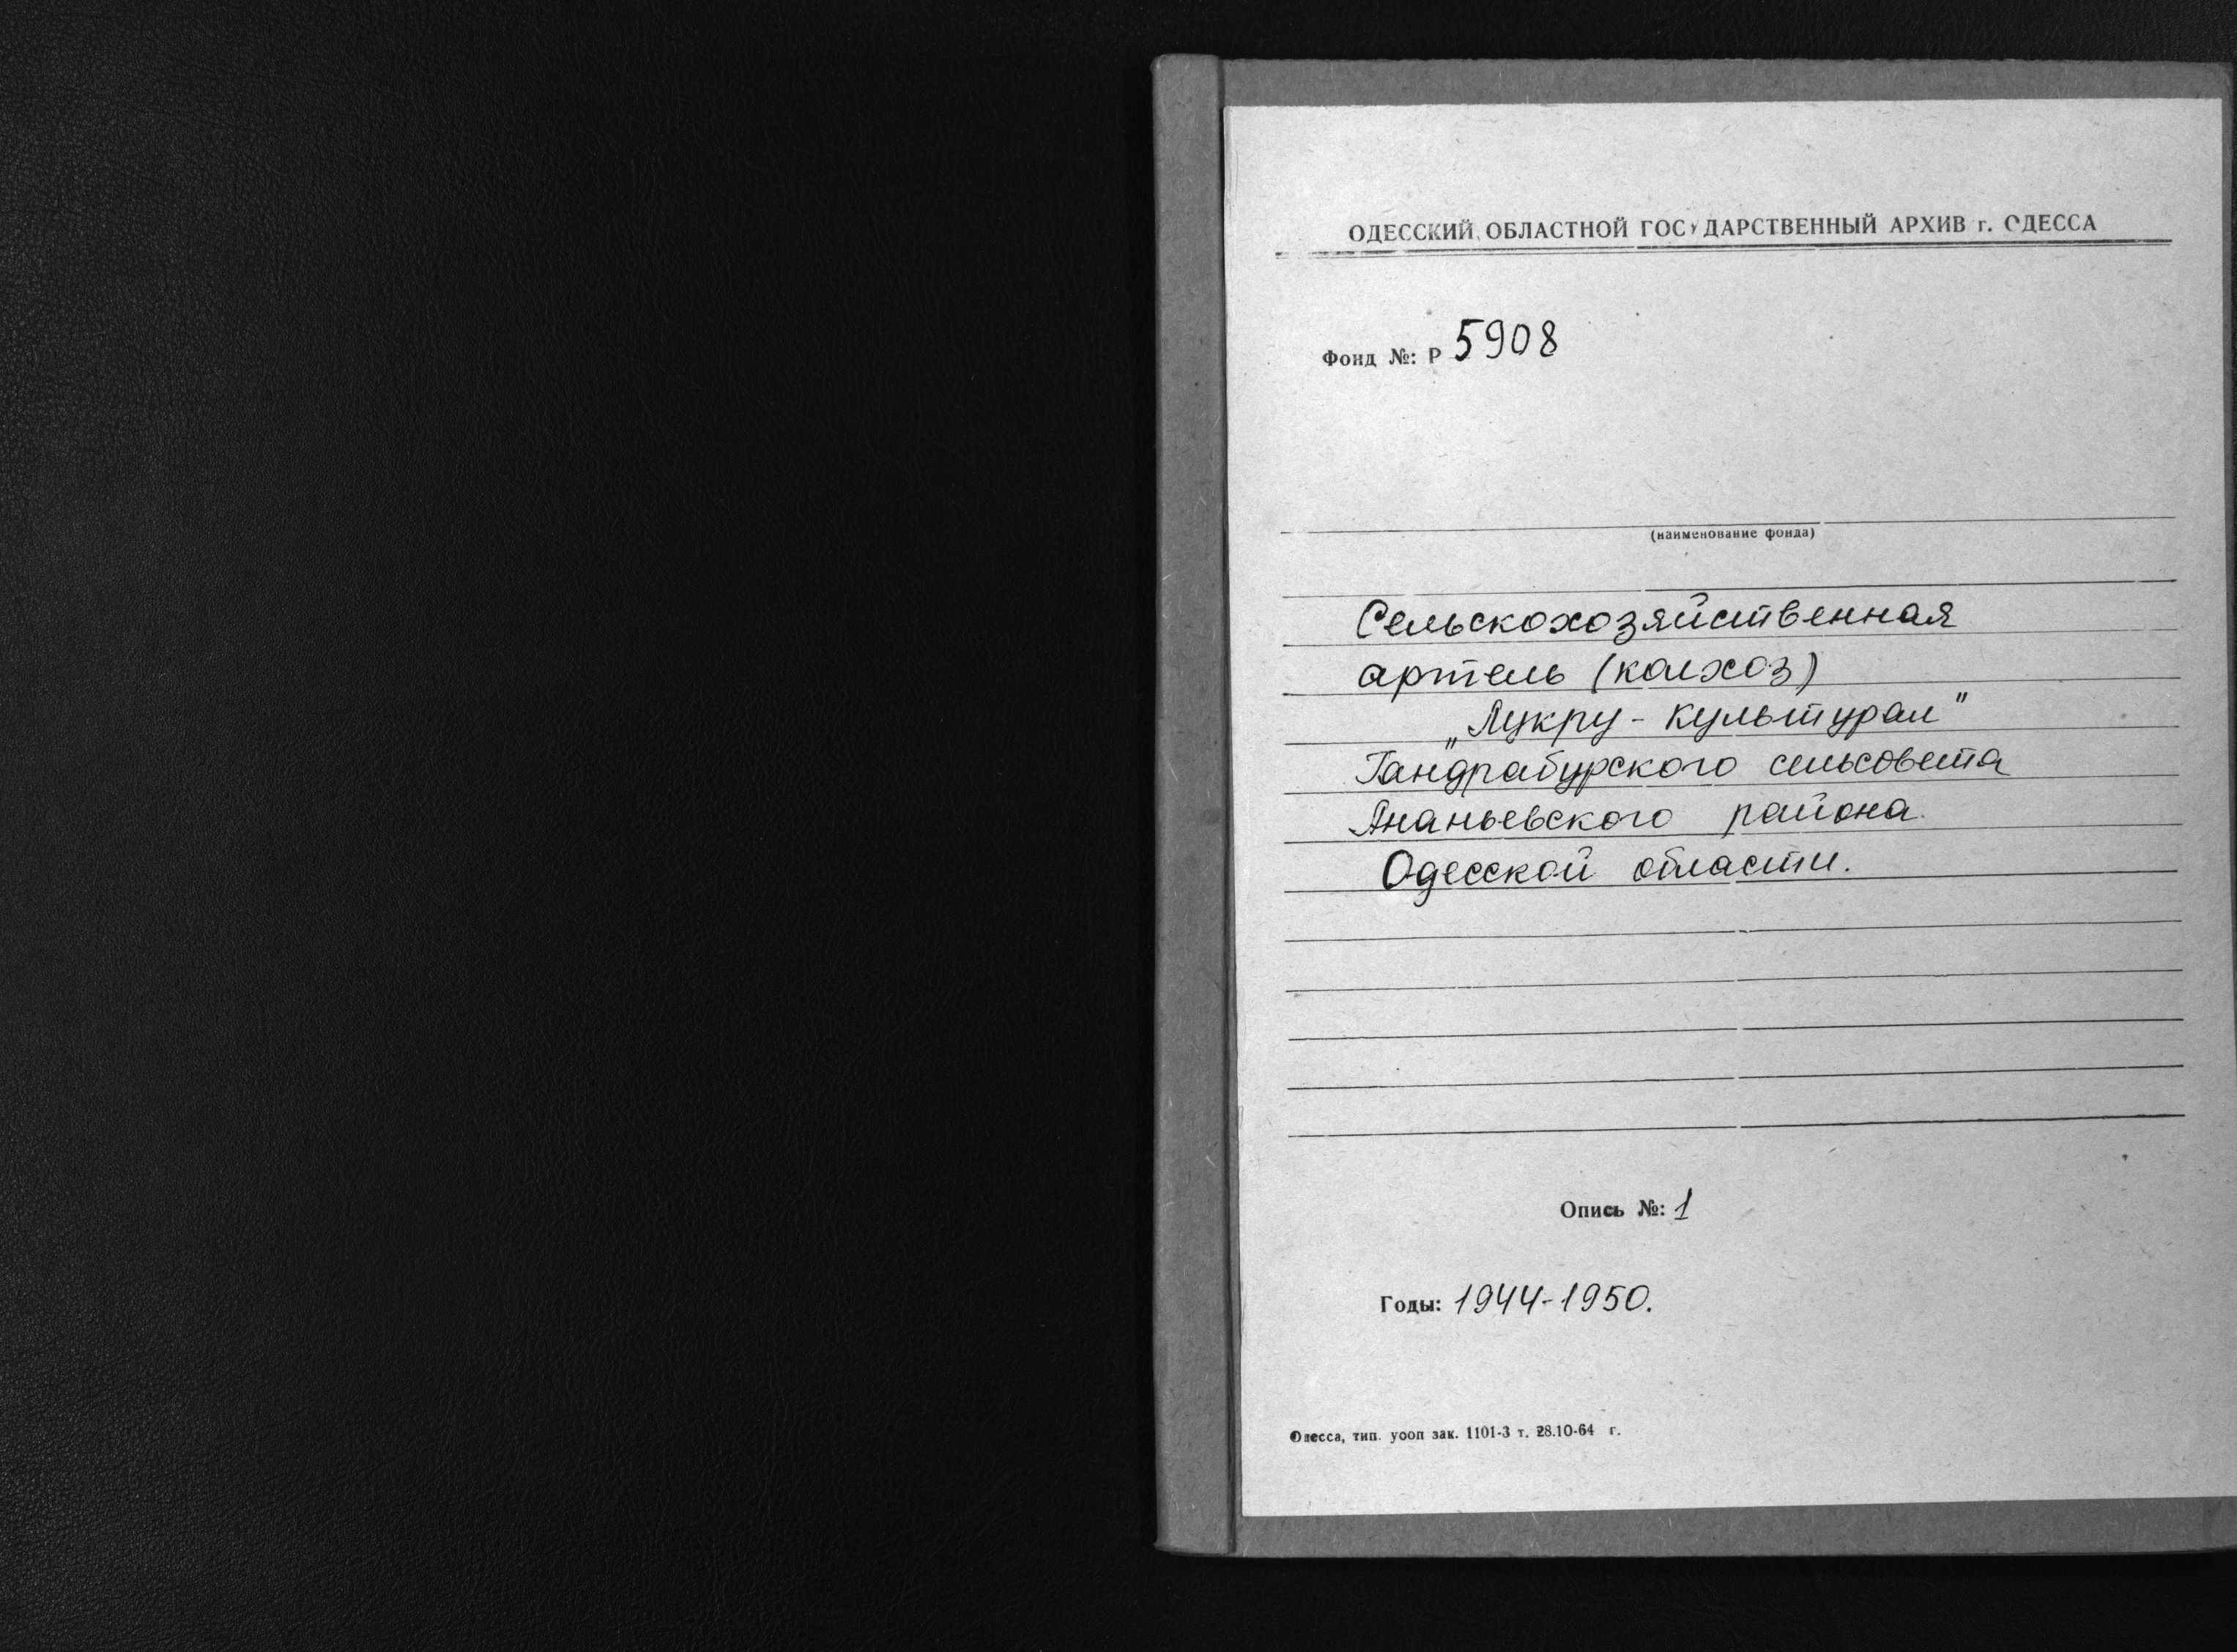 ОДЕССКИЙ ОБЛАСТНОЙ ГОСУДАРСТВЕННЫЙ АРХИВ г. ОДЕССА
Фонд №: Р 5908
(наименование фонда)
Сельскохозяйственная
артель (колхоз)
„Лукру - Культурал"
Гандрабурского сельсовета
Ананьевского района.
Одесской области.
Опись №: 1
Годы: 1944-1950.
Одесса, тип. уооп зак. 1101-3 т. 28.10-64 г.